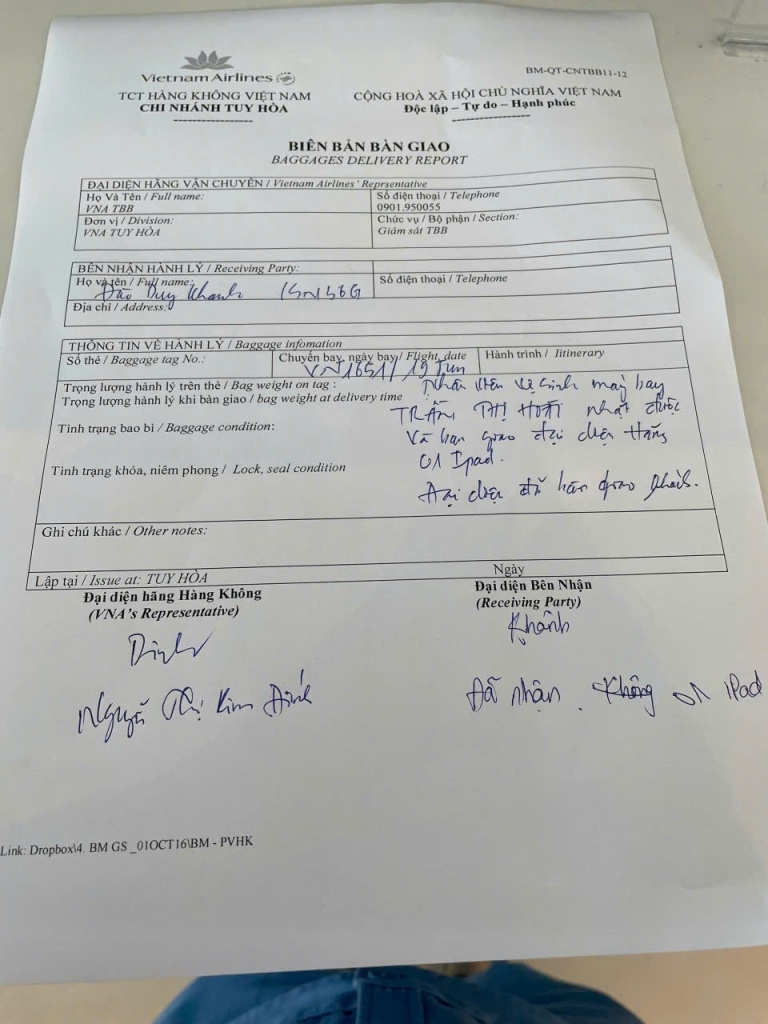 Vietnam Airlines
BM-QT-CNTBB11-12
TCT HÀNG KHÔNG VIỆT NAM
CHI NHÁNH TUY HÒA
CỘNG HOÀ XÃ HỘI CHỦ NGHĨA VIỆT NAM
Độc lập – Tự do – Hạnh phúc
BIÊN BẢN BÀN GIAO
BAGGAGES DELIVERY REPORT
ĐẠI DIỆN HÃNG VẬN CHUYỂN / Vietnam Airlines' Reprsentative
Họ Và Tên / Full name:
VNA TBB
Số điện thoại / Telephone
0901.950055
Đơn vị / Division:
VNA TUY HÒA
Chức vụ / Bộ phận / Section:
Giám sát TBB
BÊN NHẬN HÀNH LÝ / Receiving Party:
Họ và tên / Full name: Đào Duy Khanh
Số điện thoại / Telephone
Địa chỉ / Address:
THÔNG TIN VỀ HÀNH LÝ / Baggage infomation
Số thẻ / Baggage tag No.:
Chuyến bay, ngày bay / Flight, date
VN1651 / 19 Jun
Hành trình / Iitinerary
Trọng lượng hành lý trên thẻ / Bag weight on tag :
Trọng lượng hành lý khi bàn giao / bag weight at delivery time
Tình trạng bao bì / Baggage condition:
Tình trạng khóa, niêm phong / Lock, seal condition
Nhân viên vệ sinh máy bay
TRẦN THỊ HOÀI nhặt được
và bàn giao đại diện Hãng
01 Ipad.
Đại diện đã bàn giao khách.
Ghi chú khác / Other notes:
Lập tại / Issue at: TUY HÒA
Ngày
Đại diện hãng Hàng Không
(VNA's Representative)
Đại diện Bên Nhận
(Receiving Party)
Khánh
Nguyễn Thị Kim
Đã nhận . Không 01 iPad
Link: Dropbox\4. BM GS _01OCT16\BM - PVHK